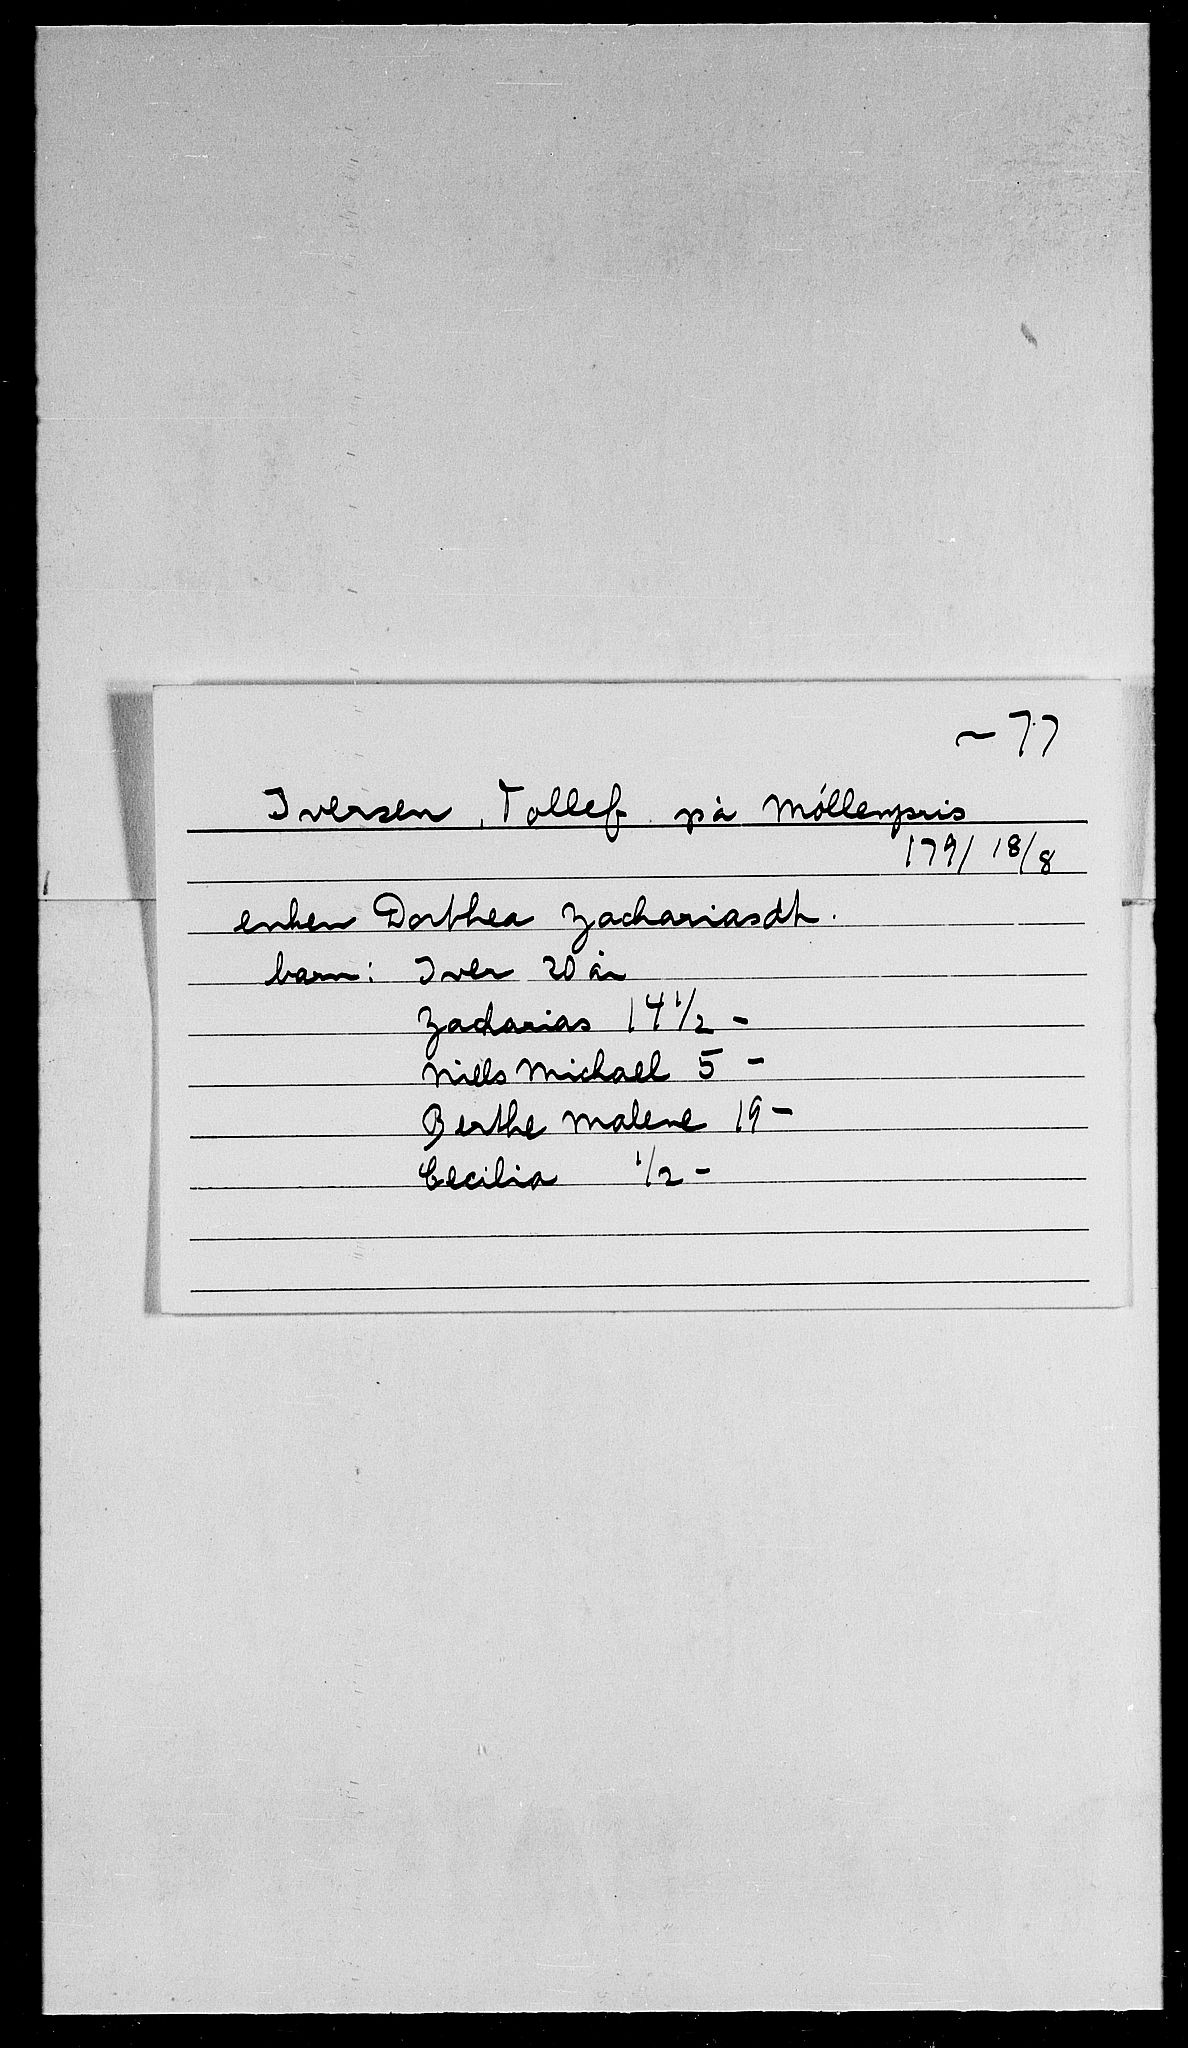 ~ 77
Iversen, Tollef på Möllenpris
179/ 18/8
enken Dorthea Zachariasdt.
barn: Iver 20 år
Zacharias 14 1/2 -
Niels Michael 5 -
Berthe Malene 19 -
Cecilia 1/2 -